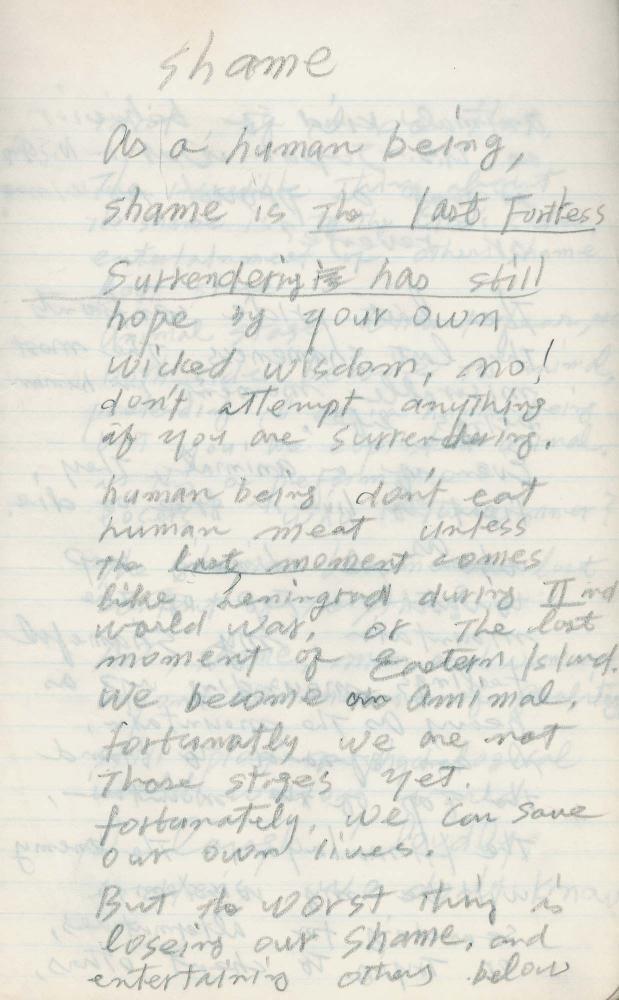 Shame
As a human being,
shame is The last Fortress
Surrendering has still
hope by your own
wicked wisdom, no!
don't attempt anything
if you are surrendering.
human being don't eat
human meat unless
the last moment comes
like Leningrad during II nd
world war, or The last
moment of Eastern Island.
We become an animal.
fortunatly we are not
Those stages yet.
fortunately, we can save
our own lives.
But the worst thing is
loseing our shame, and
entertaining others below